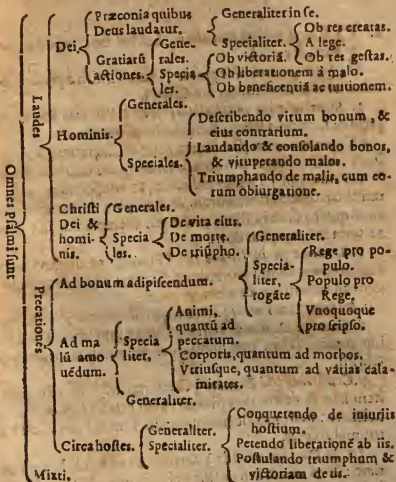 Omnes Psalmi sunt
Laudes
Dei
Præconia quibus
Deus laudatur.
Generaliter in se.
Specialiter.
Ob res creatas.
A lege.
Ob res gestas.
Gratiarū
actiones.
Gene-
rales.
Specia
les.
Ob victoriā.
Ob liberationem à malo.
Ob beneficentiā ac tuitionem.
Hominis.
Generales.
Speciales.
Describendo virum bonum, &
eius contrarium.
Laudando & consolando bonos,
& vituperando malos.
Triumphando de malis, cum eo-
rum obiurgatione.
Christi
Dei &
homi-
nis.
Generales.
Specia
les.
De vita eius.
De morte.
De triūpho.
Precationes
Ad bonum adipiscendum.
Generaliter.
Specia-
liter,
rogāte
Rege pro po-
pulo.
Populo pro
Rege.
Vnoquoque
pro seipso.
Ad ma
lū amo
uēdum.
Specia
liter,
Animi,
quantū ad
peccatum.
Corporis, quantum ad morbos.
Vtriusque, quantum ad varias cala-
mitates.
Generaliter.
Circa hostes.
Generaliter.
Specialiter.
Conquerendo de iniuriis
hostium.
Petendo liberationē ab iis.
Postulando triumphum &
victoriam de iis.
Mixti.